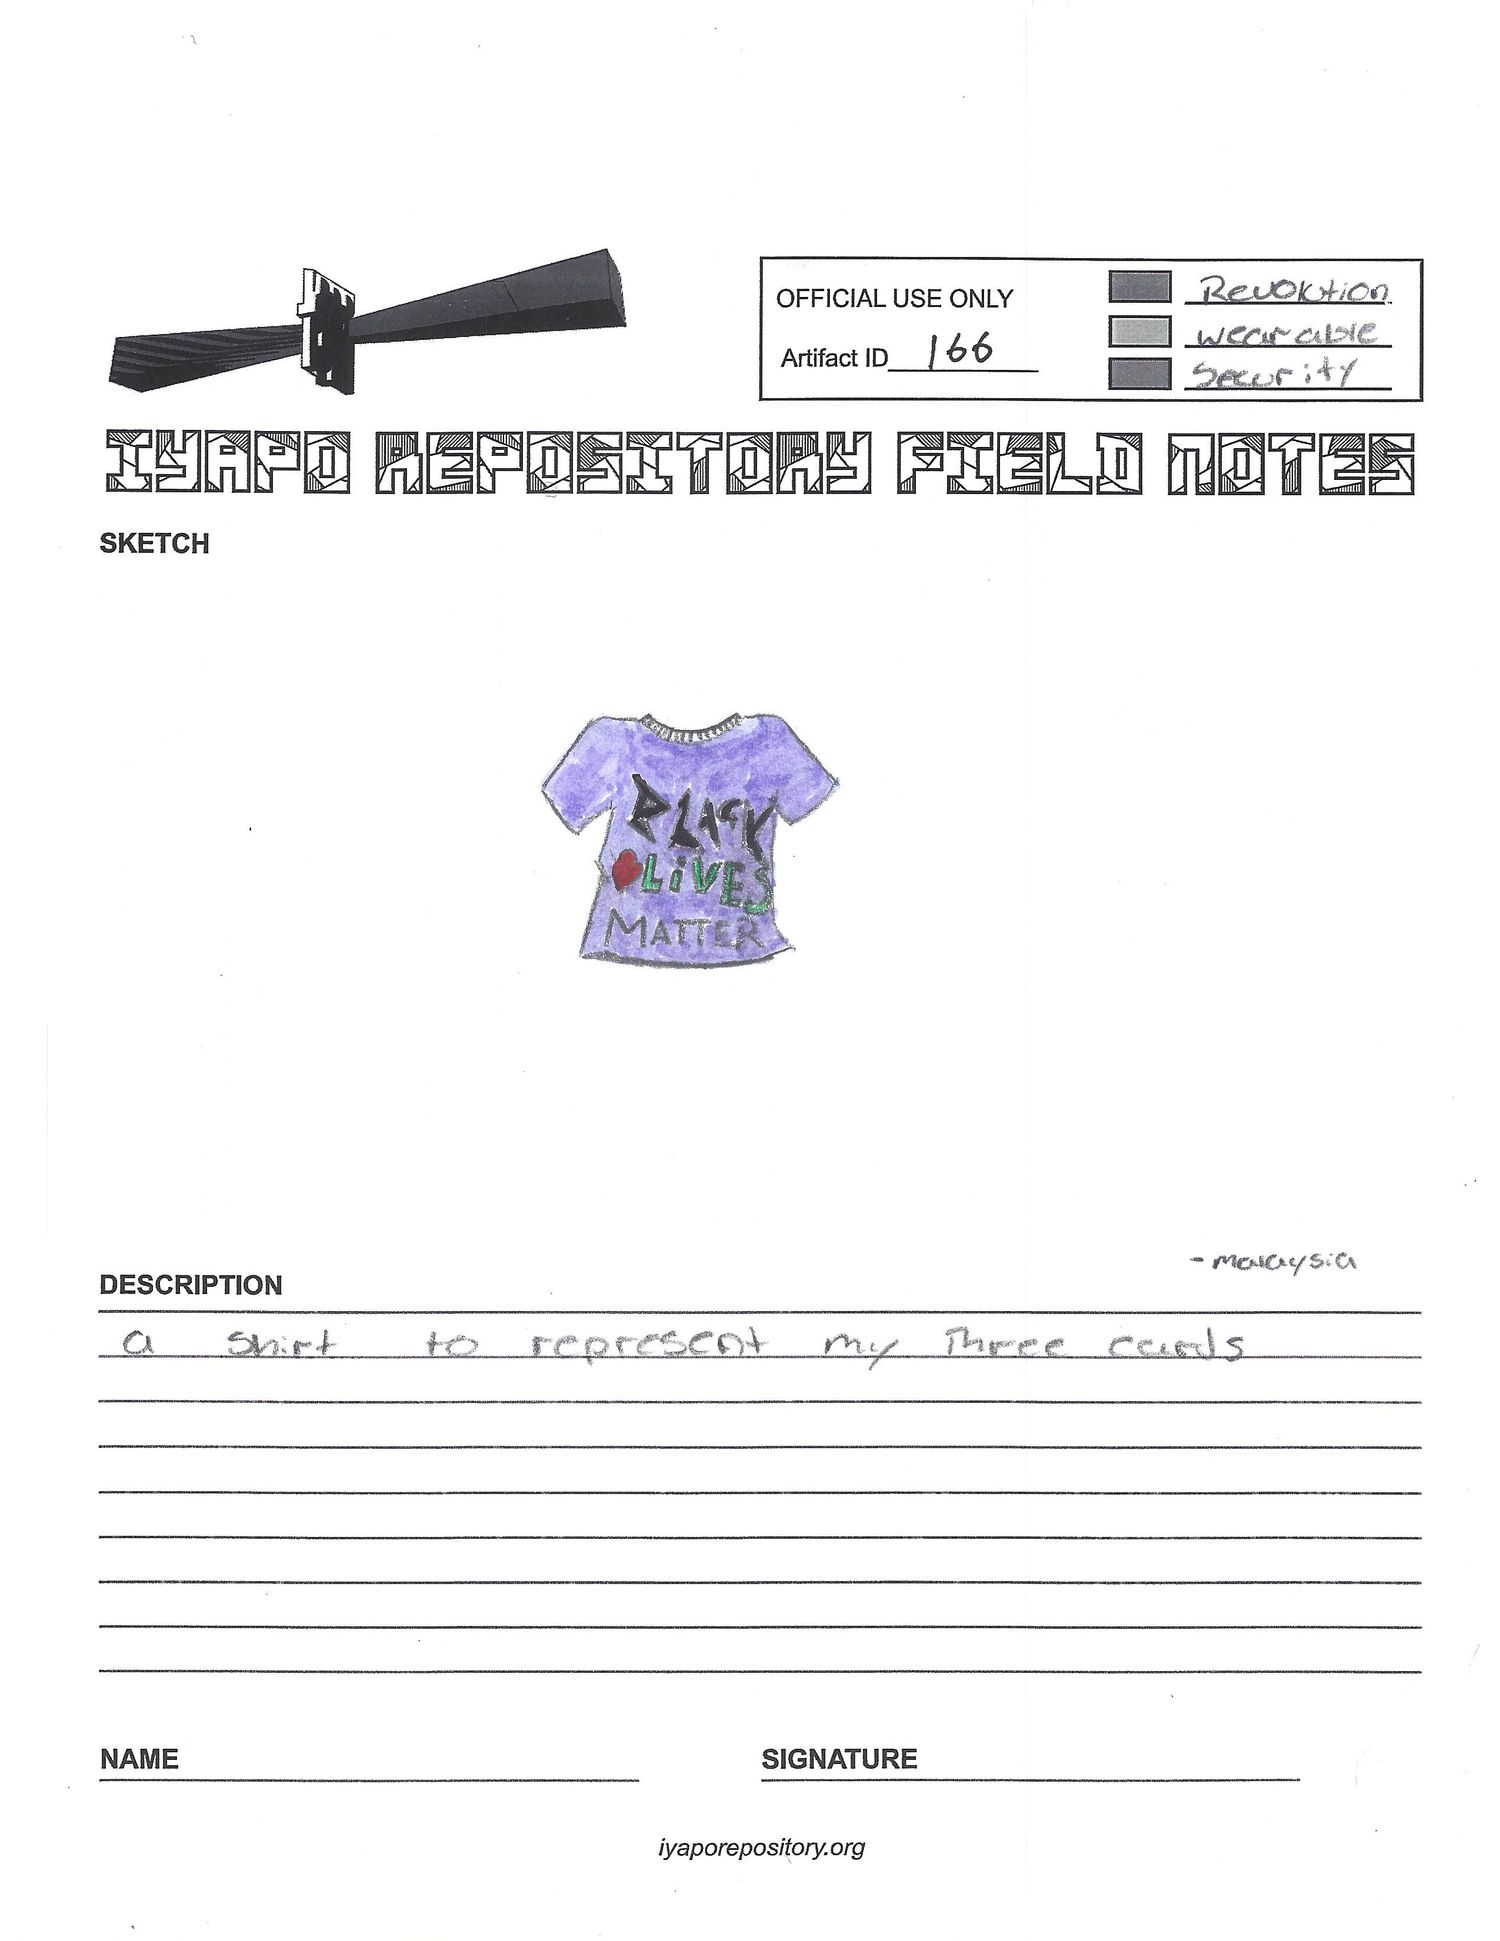 OFFICIAL USE ONLY
Revolution
Artifact ID 166
wearable
Security
IYAPO REPOSITORY FIELD NOTES
SKETCH
BLACK
LiVES
MATTER
- malaysia
DESCRIPTION
a shirt to represent my Three cards
NAME
SIGNATURE
iyaporepository.org